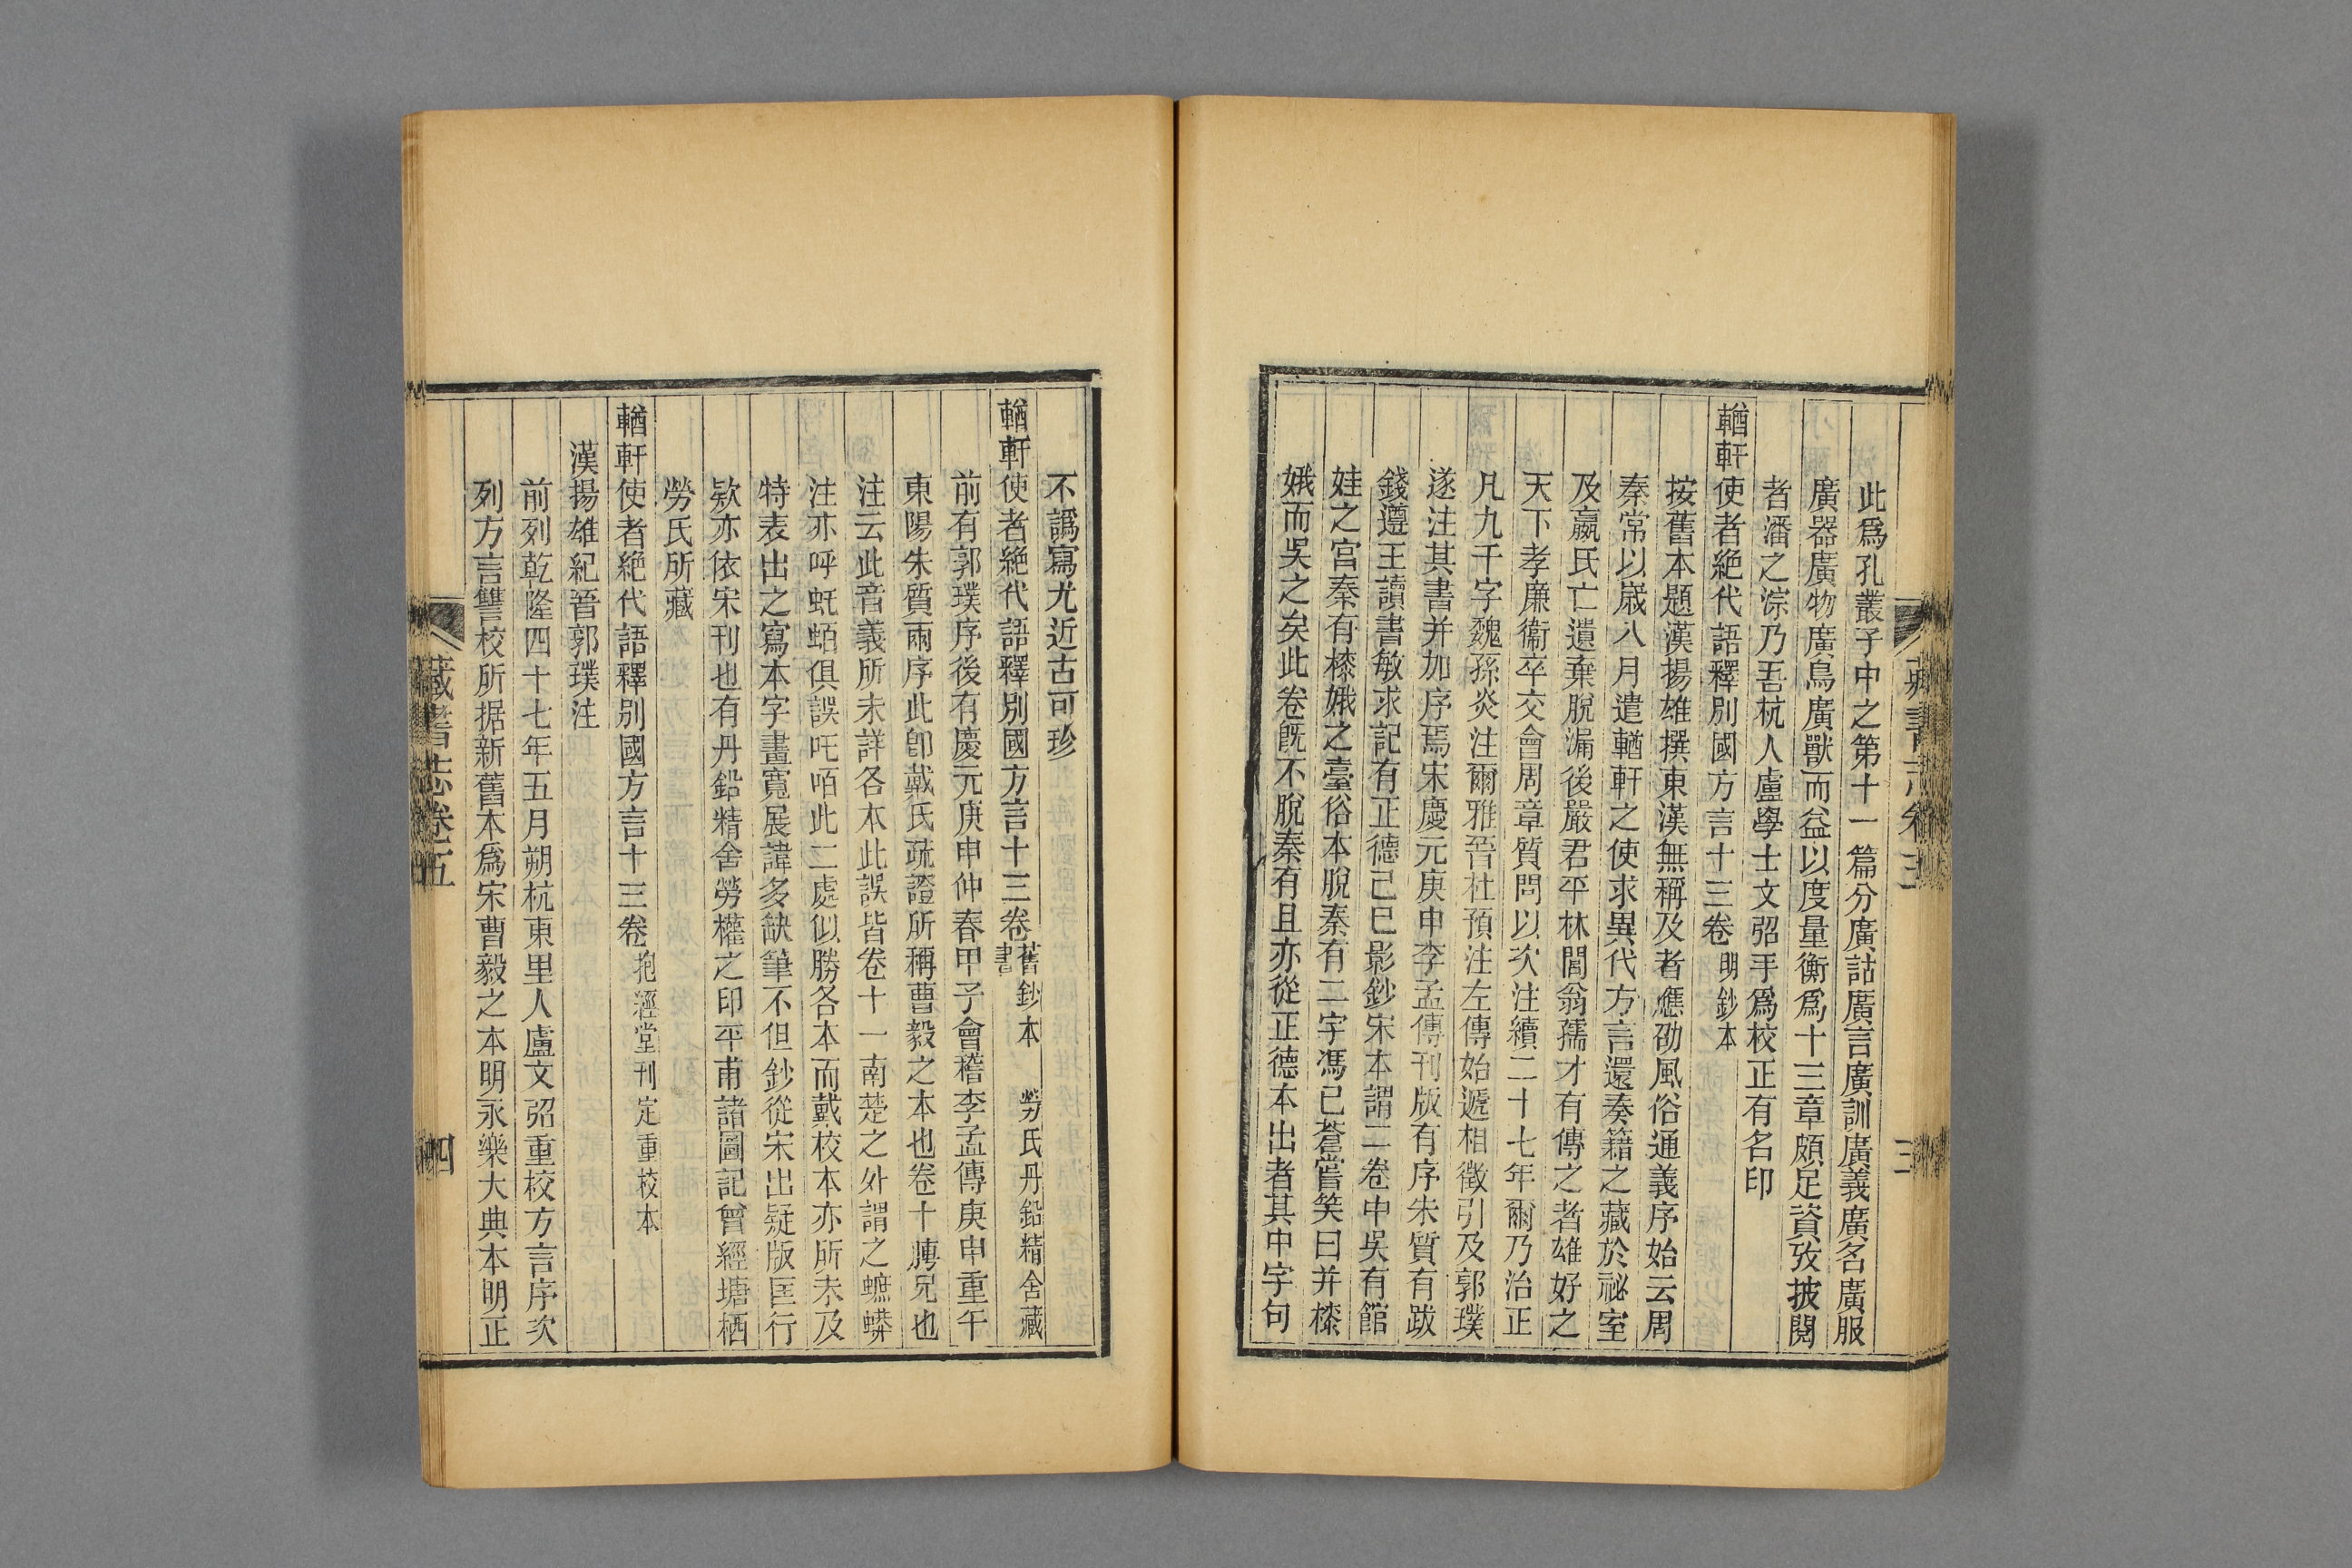 此爲孔叢子中之第十一篇分廣詁廣言廣訓廣義廣名廣服
廣器廣物廣鳥廣獸而益以度量衡爲十三章頗足資攷披閱
者潘之淙乃吾杭人盧學士文弨手爲校正有名印
輶軒使者絕代語釋別國方言十三卷 明鈔本
按舊本題漢揚雄撰東漢無稱及者應劭風俗通義序始云周
秦常以歲八月遣輶軒之使求異代方言還奏籍之藏於祕室
及嬴氏亡遺棄脫漏後嚴君平林閭翁孺才有傳之者雄好之
天下孝廉衞卒交會周章質問以次注續二十七年爾乃治正
凡九千字魏孫炎注爾雅晉杜預注左傳始遞相徵引及郭璞
遂注其書并加序焉宋慶元庚申李孟傳刊版有序朱質有跋
錢遵王讀書敏求記有正德己巳影鈔宋本謂二卷中吳有館
娃之宮秦有㯃娥之臺俗本脫秦有二字馮已蒼嘗笑曰并㯃
娥而吳之矣此卷旣不脫秦有且亦從正德本出者其中字句
藏書志卷五
三
不譌寫尤近古可珍
輶軒使者絕代語釋別國方言十三卷 舊鈔本 勞氏丹鉛精舍藏書
前有郭璞序後有慶元庚申仲春甲子會稽李孟傳庚申重午
東陽朱質兩序此卽戴氏疏證所稱曹毅之本也卷十䏝兄也
注云此音義所未詳各本此誤皆卷十一南楚之外謂之蟅蟒
注亦呼虴蛨俱誤吒咟此二處似勝各本而戴校本亦所未及
特表出之寫本字畫寬展諱多缺筆不但鈔從宋出疑版匡行
欵亦依宋刊也有丹鉛精舍勞權之印平甫諸圖記曾經塘栖
勞氏所藏
輶軒使者絕代語釋別國方言十三卷 抱經堂刊定重校本
漢揚雄紀晉郭璞注
前列乾隆四十七年五月朔杭東里人盧文弨重校方言序次
列方言讐校所据新舊本爲宋曹毅之本明永樂大典本明正
藏書志卷五
四